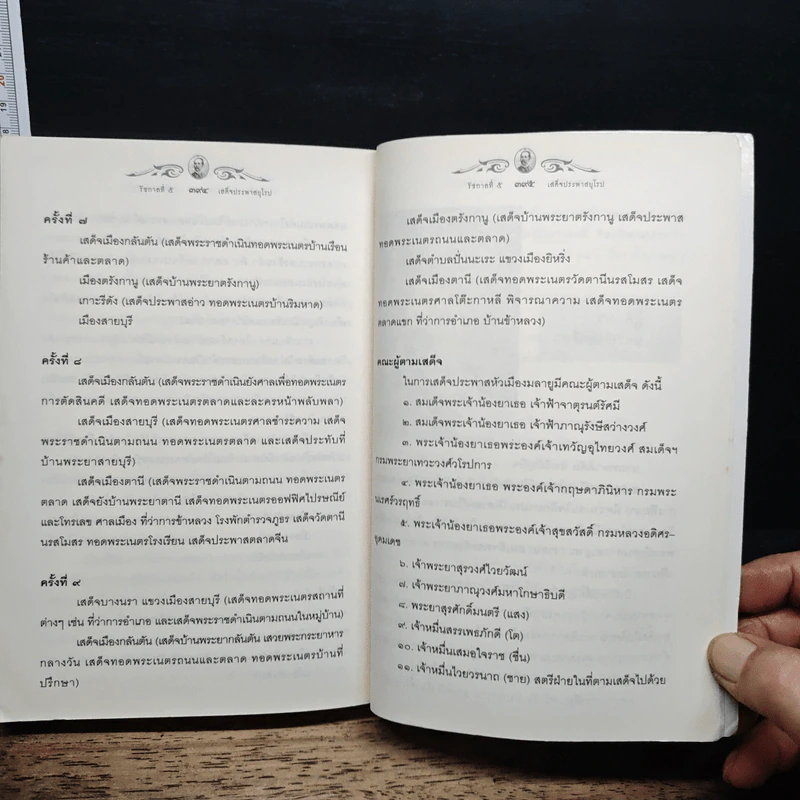 รัชกาลที่ ๕ ๓๙๔ เสด็จประพาสยุโรป
ครั้งที่ ๗
เสด็จเมืองกลันตัน (เสด็จพระราชดำเนินทอดพระเนตรบ้านเรือน
ร้านค้าและตลาด)
เมืองตรังกานู (เสด็จบ้านพระยาตรังกานู)
เกาะรีดัง (เสด็จประพาสอ่าว ทอดพระเนตรบ้านริมหาด)
เมืองสายบุรี
ครั้งที่ ๘
เสด็จเมืองกลันตัน (เสด็จพระราชดำเนินยังศาลเพื่อทอดพระเนตร
การตัดสินคดี เสด็จทอดพระเนตรตลาดและละครหน้าพลับพลา)
เสด็จเมืองสายบุรี (เสด็จทอดพระเนตรศาลชำระความ เสด็จ
พระราชดำเนินตามถนน ทอดพระเนตรตลาด และเสด็จประทับที่
บ้านพระยาสายบุรี)
เสด็จเมืองตานี (เสด็จพระราชดำเนินตามถนน ทอดพระเนตร
ตลาด เสด็จยังบ้านพระยาตานี เสด็จทอดพระเนตรออฟฟิศไปรษณีย์
และโทรเลข ศาลเมือง ที่ว่าการข้าหลวง โรงพักตำรวจภูธร เสด็จวัดตานี
นรสโมสร ทอดพระเนตรโรงเรียน เสด็จประพาสตลาดจีน
ครั้งที่ ๙
เสด็จบางนรา แขวงเมืองสายบุรี (เสด็จทอดพระเนตรสถานที่
ต่างๆ เช่น ที่ว่าการอำเภอ และเสด็จพระราชดำเนินตามถนนในหมู่บ้าน)
เสด็จเมืองกลันตัน (เสด็จบ้านพระยากลันตัน เสวยพระกระยาหาร
กลางวัน เสด็จทอดพระเนตรถนนและตลาด ทอดพระเนตรบ้านที่
ปรึกษา)
รัชกาลที่ ๕ ๓๙๕ เสด็จประพาสยุโรป
เสด็จเมืองตรังกานู (เสด็จบ้านพระยาตรังกานู เสด็จประพาส
ทอดพระเนตรถนนและตลาด)
เสด็จตำบลปั่นนะเระ แขวงเมืองยิหริ่ง
เสด็จเมืองตานี (เสด็จทอดพระเนตรวัดตานีนรสโมสร เสด็จ
ทอดพระเนตรศาลโต๊ะกาหลี พิจารณาความ เสด็จทอดพระเนตร
ตลาดแขก ที่ว่าการอำเภอ บ้านข้าหลวง)
คณะผู้ตามเสด็จ
ในการเสด็จประพาสหัวเมืองมลายูมีคณะผู้ตามเสด็จ ดังนี้
๑. สมเด็จพระเจ้าน้องยาเธอ เจ้าฟ้าจาตุรนต์รัศมี
๒. สมเด็จพระเจ้าน้องยาเธอ เจ้าฟ้าภาณุรังษีสว่างวงศ์
๓. พระเจ้าน้องยาเธอพระองค์เจ้าเทวัญอุไทยวงศ์ สมเด็จฯ
กรมพระยาเทวะวงศ์วโรปการ
๔. พระเจ้าน้องยาเธอ พระองค์เจ้ากฤษดาภินิหาร กรมพระ
นเรศร์วรฤทธิ์
๕. พระเจ้าน้องยาเธอพระองค์เจ้าสุขสวัสดิ์ กรมหลวงอดิศร-
อุดมเดช
๖. เจ้าพระยาสุรวงศ์ไวยวัฒน์
๗. เจ้าพระยาภาณุวงศ์มหาโกษาธิบดี
๘. พระยาสุรศักดิ์มนตรี (แสง)
๙. เจ้าหมื่นสรรเพธภักดี (โต)
๑๐. เจ้าหมื่นเสมอใจราช (ชื่น)
๑๑. เจ้าหมื่นไวยวรนาถ (ชาย) สตรีฝ่ายในที่ตามเสด็จไปด้วย
20
19
8